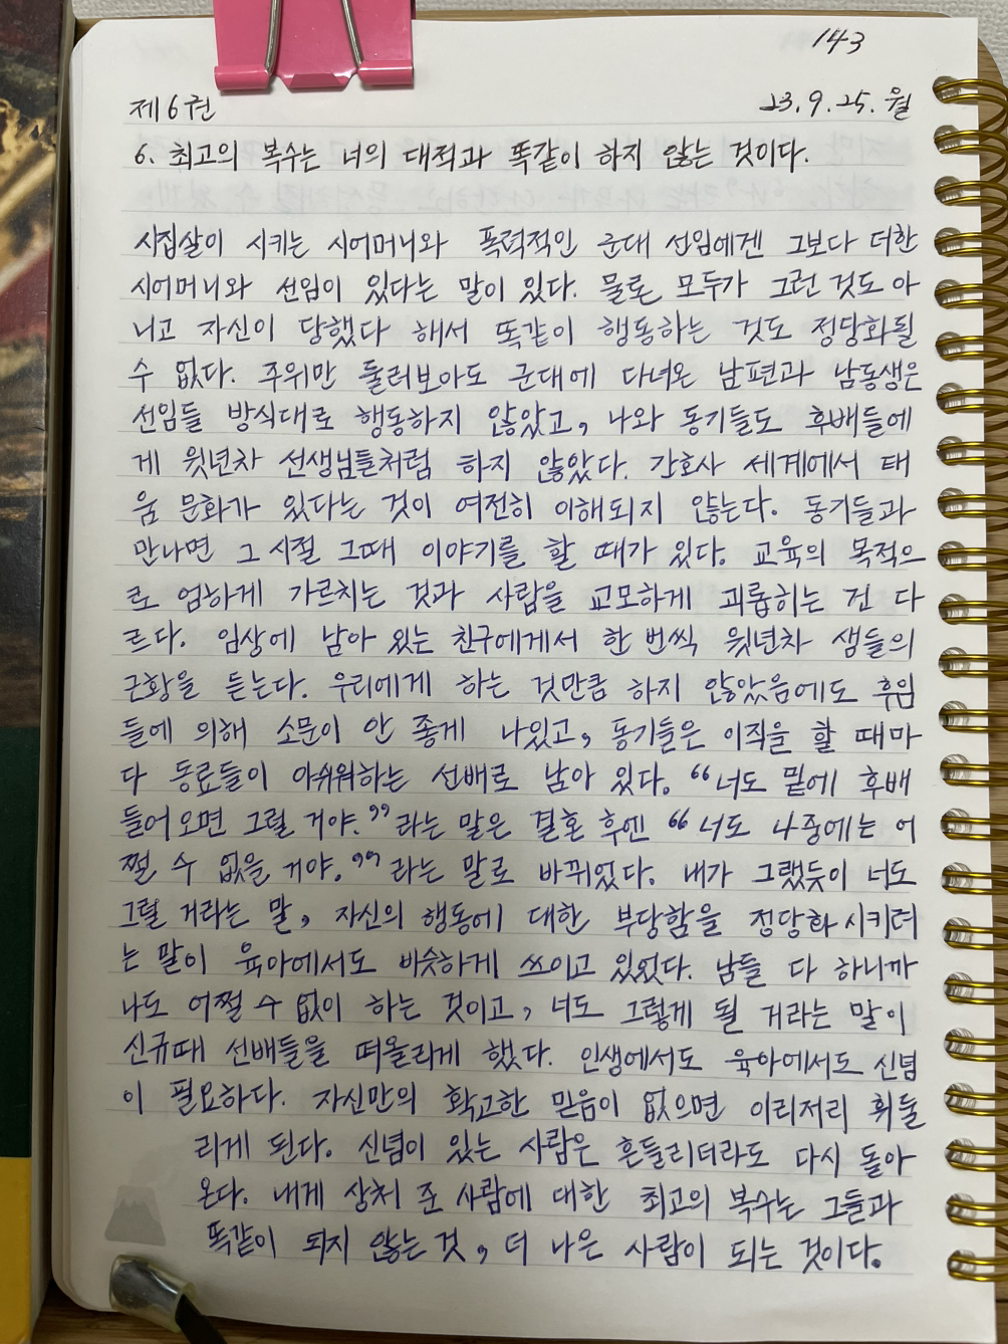 143
제6권 23.9.25.월
6. 최고의 복수는 너의 대적과 똑같이 하지 않는 것이다.
시집살이 시키는 시어머니와 폭력적인 군대 선임에겐 그보다 더한
시어머니와 선임이 있다는 말이 있다. 물론 모두가 그런 것도 아
니고 자신이 당했다 해서 똑같이 행동하는 것도 정당화될
수 없다. 주위만 둘러보아도 군대에 다녀온 남편과 남동생은
선임들 방식대로 행동하지 않았고, 나와 동기들도 후배들에
게 윗년차 선생님들처럼 하지 않았다. 간호사 세계에서 태
움 문화가 있다는 것이 여전히 이해되지 않는다. 동기들과
만나면 그 시절 그때 이야기를 할 때가 있다. 교육의 목적으
로 엄하게 가르치는 것과 사람을 교묘하게 괴롭히는 건 다
르다. 임상에 남아 있는 친구에게서 한 번씩 윗년차 샘들의
근황을 듣는다. 우리에게 하는 것만큼 하지 않았음에도 후임
들에 의해 소문이 안 좋게 나있고, 동기들은 이직을 할 때마
다 동료들이 아쉬워하는 선배로 남아 있다. "너도 밑에 후배
들어오면 그럴 거야."라는 말은 결혼 후엔 "너도 나중에는 어
쩔 수 없을 거야."라는 말로 바뀌었다. 내가 그랬듯이 너도
그럴 거라는 말, 자신의 행동에 대한 부당함을 정당화시키려
는 말이 육아에서도 비슷하게 쓰이고 있었다. 남들 다 하니까
나도 어쩔 수 없이 하는 것이고, 너도 그렇게 될 거라는 말이
신규때 선배들을 떠올리게 했다. 인생에서도 육아에서도 신념
이 필요하다. 자신만의 확고한 믿음이 없으면 이리저리 휘둘
리게 된다. 신념이 있는 사람은 흔들리더라도 다시 돌아
온다. 내게 상처 준 사람에 대한 최고의 복수는 그들과
똑같이 되지 않는 것, 더 나은 사람이 되는 것이다.